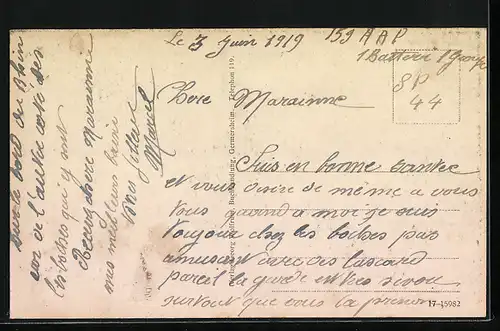 Le 3 Juin 1919 159 A A P
1 Batteri 1 Group
SP
44
Chere Marainne
Suis en bonne santée
et vous desire de même a vous
vous quand a moi je suis
toujour chez les boches pas
amusant avec ces lascard
pareil la garde est tres sever
surtout que vous la prenon
sur le bord du Rhin
car de l'autre coté des
les boches qui y sont
Recevez chere Marainne
mes meilleurs baisé
Votre filleul
Marcel
Verlag Georg Buchhandlung, Germersheim. Telephon 119.
17-15982